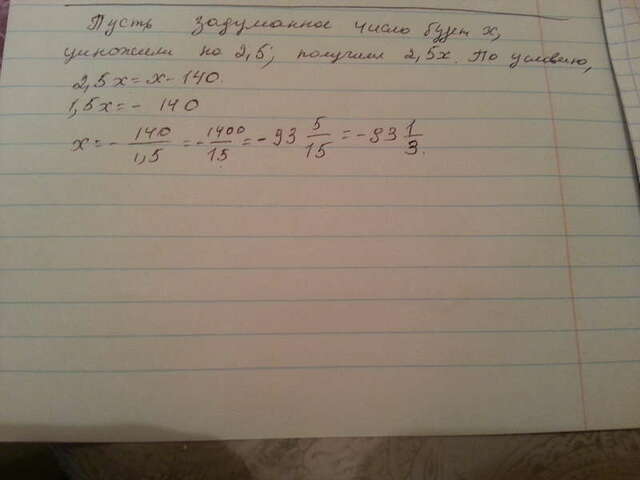 Пусть задуманное число будет x,
умножили на 2,5; получили 2,5x. По условию,
2,5x = x - 140.
1,5x = - 140
x = - 140/1,5 = - 1400/15 = - 93 5/15 = - 93 1/3.